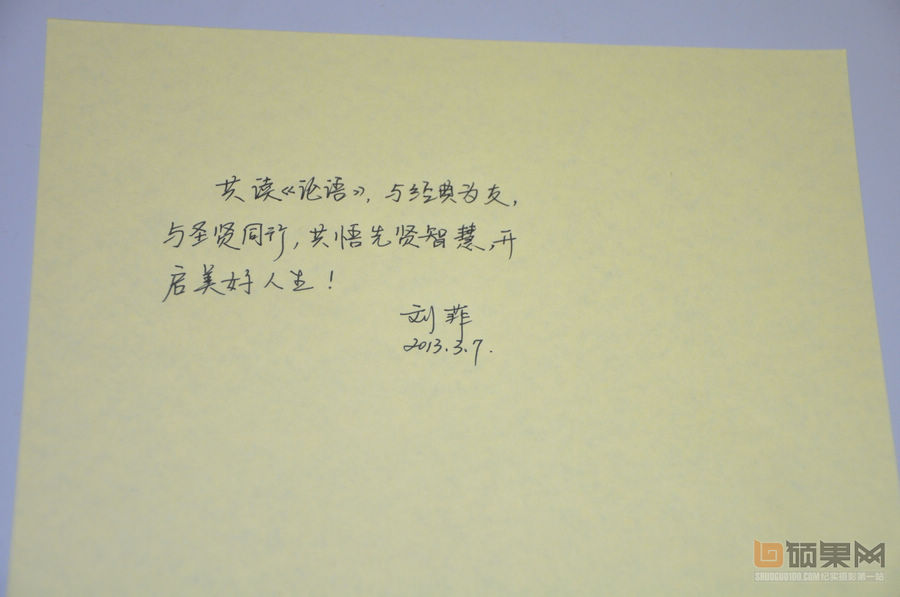 共读《论语》，与经典为友，
与圣贤同行，共悟先贤智慧，开
启美好人生！
刘菲
2013.3.7.
硕果网
SHUOGUO100.COM纪实摄影第一站